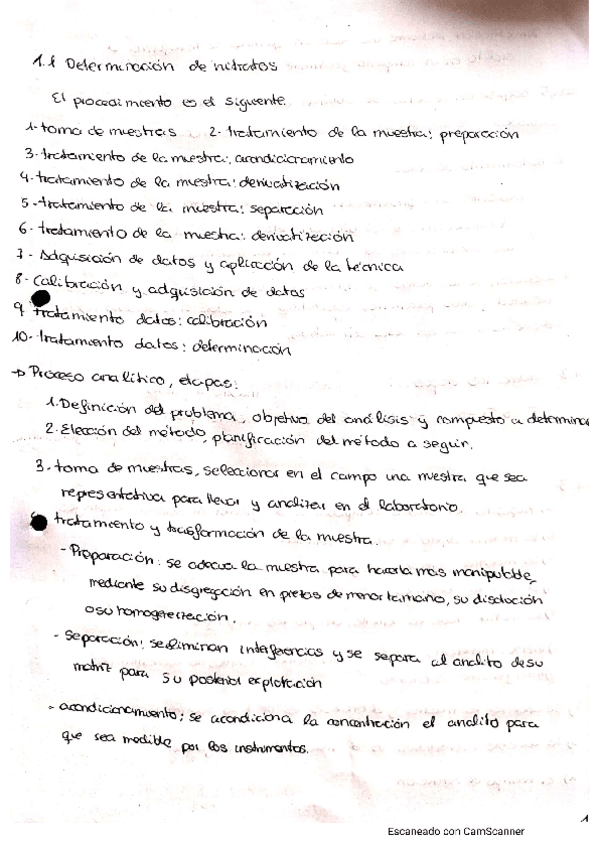 1.1 Determinación de nitratos
El procedimiento es el siguiente.
1- toma de muestras 2- tratamiento de la muestra: preparación
3- tratamiento de la muestra: acondicionamiento
4- tratamiento de la muestra: derivatización
5- tratamiento de la muestra: separación
6- tratamiento de la muestra: derivatización
7- Adquisición de datos y aplicación de la técnica
8- Calibración y adquisición de datos
9 tratamiento datos: calibración
10- tratamiento datos: determinación
→ Proceso analítico, etapas:
1. Definición del problema, objetivo del análisis y compuesto a determinar
2. Elección del método, planificación del método a seguir.
3. toma de muestras, seleccionar en el campo una muestra que sea
representativa para llevar y analizar en el laboratorio.
tratamiento y trasformación de la muestra.
- Preparación: se adecua la muestra para hacerla más manipulable,
mediante su disgregación en piezas de menor tamaño, su disolución
o su homogenización.
- Separación: se eliminan interferencias y se separa al analito de su
matriz para su posterior explotación
- acondicionamiento; se acondiciona la concentración el analito para
que sea medible por los instrumentos.
1
Escaneado con CamScanner